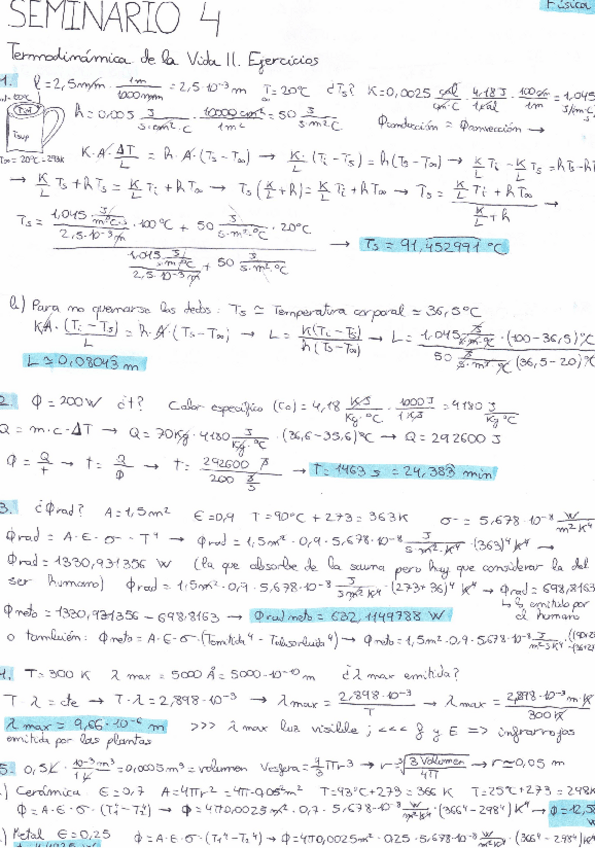 SEMINARIO 4
Física
Termodinámica de la Vida II. Ejercicios
1. l = 2,5 mm · 1m/1000mm = 2,5·10⁻³ m T∞ = 20ºC ¿Ts? K = 0,0025 cal/cm·C · 4,18J/1cal · 100cm/1m = 1,045
h = 0,005 J/s·cm²·C · 10000 cm²/1m² = 50 J/s·m²·C Φconducción = Φconvección →
Tsup
K·A·ΔT/L = h·A·(Ts-T∞) → K/L·(Ti-Ts) = h(Ts-T∞) → K/L Ti - K/L Ts = hTs-hT
→ K/L Ts + hTs = K/L Ti + hT∞ → Ts(K/L + h) = K/L Ti + hT∞ → Ts = (K/L Ti + hT∞)/(K/L + h) →
Ts = (1,045 J/s·m·ºC / 2,5·10⁻³ m · 100ºC + 50 J/s·m²·ºC · 20ºC)/(1,045 J/s·m·ºC / 2,5·10⁻³ m + 50 J/s·m²·ºC) → Ts = 91,452991 ºC
b) Para no quemarse los dedos: Ts ≃ Temperatura corporal ≃ 36,5ºC
KA·(Ti-Ts)/L = h·A·(Ts-T∞) → L = K(Ti-Ts)/h(Ts-T∞) → L = 1,045 J/s·m·ºC · (100-36,5)ºC / 50 J/s·m²·ºC (36,5-20)ºC
L ≃ 0,08043 m
2. Φ = 200W ¿t? Calor específico (Ce) = 4,18 KJ/Kg·ºC · 1000J/1KJ = 4180 J/Kg·ºC
Q = m·c·ΔT → Q = 70Kg · 4180 J/Kg·ºC · (36,6-35,6)ºC → Q = 292600 J
Φ = Q/t → t = Q/Φ → t = 292600 J / 200 J/s → t = 1463 s = 24,383 min
3. ¿Φrad? A = 1,5m² ε = 0,9 T = 90ºC + 273 = 363K σ = 5,678·10⁻⁸ W/m²K⁴
Φrad = A·ε·σ·T⁴ → Φrad = 1,5m² · 0,9 · 5,678·10⁻⁸ J/s·m²·K⁴ · (363)⁴ K⁴ →
Φrad = 1330,931356 W (la que absorbe de la sauna pero hay que considerar la del
ser humano) Φrad = 1,5m² · 0,9 · 5,678·10⁻⁸ J/s·m²K⁴ · (273+36)⁴ K⁴ → Φrad = 698,8163
↳ emitido por el humano
Φneto = 1330,931356 - 698,8163 → Φrad neto = 632,1149788 W
o también: Φneto = A·ε·σ·(Temitida⁴ - Tabsorbida⁴) → Φneto = 1,5m² · 0,9 · 5,678·10⁻⁸ J/s·m²K⁴
4. T = 300 K λ max = 5000 Å = 5000·10⁻¹⁰ m ¿λ max emitida?
T·λ = cte → T·λ = 2,898·10⁻³ → λ max = 2,898·10⁻³/T → λ max = 2,898·10⁻³ m·K/300K
λ max = 9,66·10⁻⁶ m >>> λ max luz visible ; <<< f y E => infrarrojos
emitida por las plantas
5. 0,5L · 10⁻³m³/1L = 0,0005m³ = volumen Vesfera = 4/3 πr³ → r = ³√(3 Volumen/4π) → r ≃ 0,05 m
a) Cerámica ε = 0,7 A = 4πr² = 4π·0,05²m² T = 93ºC+273 = 366 K T = 25ºC+273 = 298K
Φ = A·ε·σ·(T₁⁴-T₂⁴) → Φ = 4π0,0025m² · 0,7 · 5,678·10⁻⁸ W/m²K⁴ · (366⁴-298⁴) K⁴ → Φ = 12,58
b) Metal ε = 0,25 Φ = A·ε·σ·(T₁⁴-T₂⁴) → Φ = 4π0,0025m² · 0,25 · 5,678·10⁻⁸ W/m²K⁴ · (366⁴-298⁴) K⁴